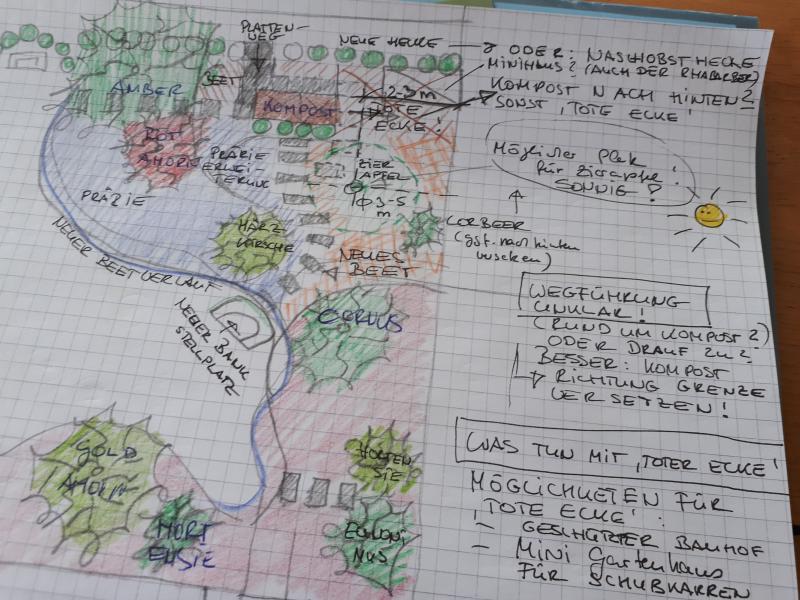 PLATTEN-
WEG
NEUE HECKE
ODER: NASCHOBSTHECKE
MINIHAUS? (AUCH DER RHABARBER)
KOMPOST NACH HINTEN?
SONST 'TOTE ECKE'
AMBER
BEET
KOMPOST
2-3 m
TOTE
ECKE!
ROT
AHORN
PRÄRIE
ERWEI-
TERUNG
ZIER
APFEL
φ 3-5
m
Möglicher Platz
für Zierapfel!
SONNIG!
PRÄRIE
MÄRZ
KIRSCHE
LORBEER
(ggf. nach hinten
NEUES
BEET
NEUER BEETVERLAUF
NEUER BANK
STELLPLATZ
CERCUS
WEGFÜHRUNG
UNKLAR!
(RUND UM KOMPOST?)
ODER DRAUF ZU?
BESSER: KOMPOST
RICHTUNG GRENZE
VERSETZEN!
GOLD
AHORN
HORT
ENSIE
HORTEN
SIE
EUONI
MUS
WAS TUN MIT 'TOTER ECKE'
MÖGLICHKEITEN FÜR
'TOTE ECKE':
-
- MINI Gartenhaus
FÜR SCHUBKARREN